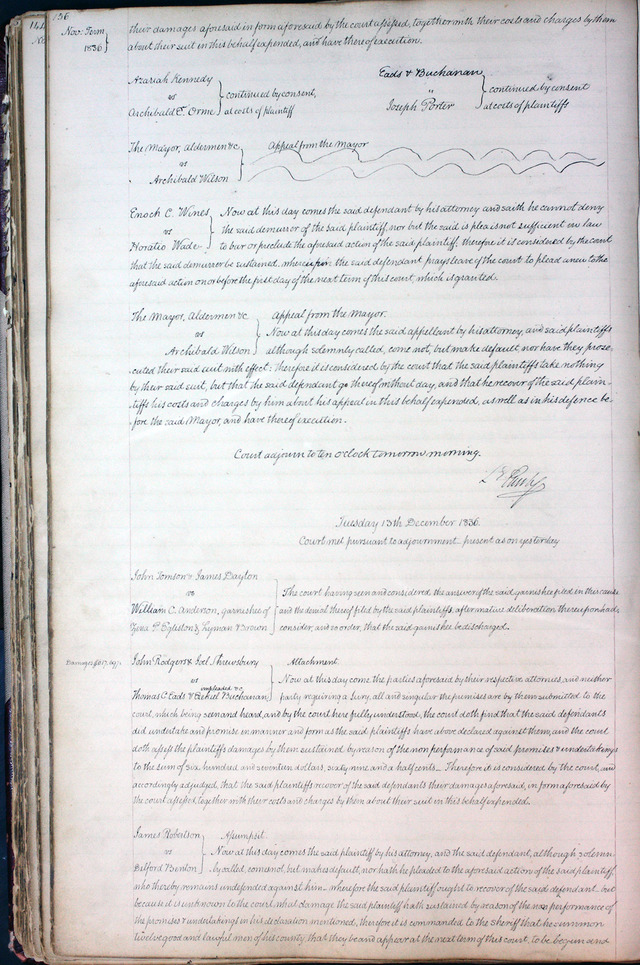 136
Nov: Term
1836
their damages aforesaid in form aforesaid by the court assessed, together with their costs and charges by them
about their suit in this behalf expended, and have thereof execution.
Azariah Kennedy
vs
Archibald E. Orme
continued by consent,
at costs of plaintiff
Eads & Buchanan
"
Joseph Porter
continued by consent
at costs of plaintiffs
The Mayor, aldermen &c
vs
Archibald Wilson
Appeal from the Mayor
Enoch C. Wines
vs
Horatio Wade
Now at this day comes the said defendant by his attorney and saith he cannot deny
the said demurrer of the said plaintiff, nor but the said is plea is not sufficient in law
to bar or preclude the aforesaid action of the said plaintiff, therefore it is considered by the court
that the said demurrer be sustained. whereupon the said defendant prays leave of the court to plead anew to the
aforesaid action on or before the first day of the next term of this court, which is granted.
The Mayor, Aldermen &c
vs
Archibald Wilson
Appeal from the Mayor.
Now at this day comes the said appellant by his attorney, and said plaintiffs
although solemnly called, come not, but make default, nor have they prose-
cuted their said suit with effect: therefore it is considered by the court that the said plaintiffs take nothing
by their said suit, but that the said defendant go thereof without day, and that he recover of the said plain-
tiffs his costs and charges by him about his appeal in this behalf expended, as well as in his defence be-
fore the said Mayor, and have thereof execution.
Court adjourn to ten o'clock tomorrow morning.
Tuesday 13th December 1836.
Court met pursuant to adjournment_ present as on yesterday
John Tomson & James Dayton
vs
William C. Anderson, garnishee of
Egleston & Lyman Brown
The court having seen and considered the answer of the said garnishee filed in this cause
and the denial thereof filed by the said plaintiffs, after mature deliberation thereupon had,
consider, and so order, that the said garnishee be discharged.
John Rodgers & Joel Shrewsbury
vs
impleaded &c
Thomas C. Eads & Ezekiel Buchanan
Attachment.
Now at this day come the parties aforesaid by their respective attornies, and neither
party requiring a Jury, all and singular the premises are by them submitted to the
court, which being seen and heard, and by the court here fully understood, the court doth find that the said defendants
did undertake and promise in manner and form as the said plaintiffs have above declared against them, and the court
doth assess the plaintiffs damages by them sustained by reason of the non performance of said premises & undertakings
to the sum of six hundred and seventeen dollars, sixty nine and a half cents_ Therefore it is considered by the court, and
accordingly adjudged, that the said plaintiffs recover of the said defendants their damages aforesaid, in form aforesaid by
the court assessed, together with their costs and charges by them about their suit in this behalf expended.
James Robertson
vs
Bilford Benton
Assumpsit.
Now at this day comes the said plaintiff by his attorney, and the said defendant, although solemn-
ly called, comes not, but makes default, nor hath he pleaded to the aforesaid action of the said plaintiff,
who thereby remains undefended against him. wherefore the said plaintiff ought to recover of the said defendant. but
because it is unknown to the court, what damage the said plaintiff hath sustained by reason of the non performance of
the promises & undertakings in his declaration mentioned, therefore it is commanded to the sheriff that he summon
twelve good and lawful men of his county, that they be and appear at the next term of this court, to be begun and